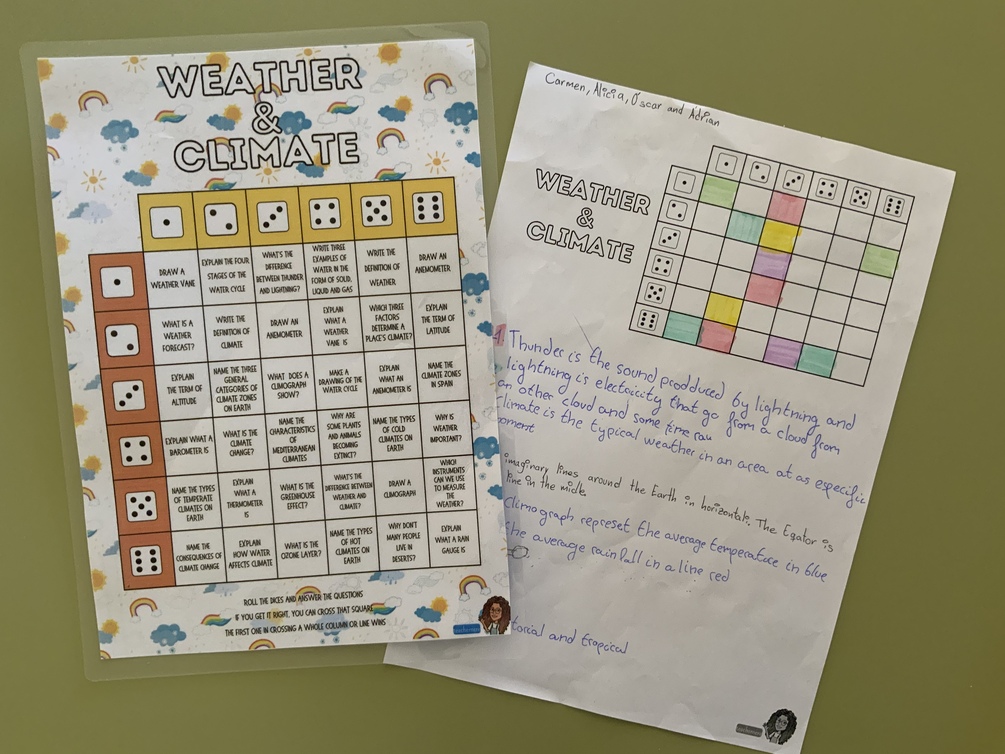 WEATHER
&
CLIMATE
DRAW A
WEATHER VANE
EXPLAIN THE FOUR
STAGES OF THE
WATER CYCLE
WHAT'S THE
DIFFERENCE
BETWEEN THUNDER
AND LIGHTNING?
WRITE THREE
EXAMPLES OF
WATER IN THE
FORM OF SOLID,
LIQUID AND GAS
WRITE THE
DEFINITION OF
WEATHER
DRAW AN
ANEMOMETER
WHAT IS A
WEATHER
FORECAST?
WRITE THE
DEFINITION OF
CLIMATE
DRAW AN
ANEMOMETER
EXPLAIN
WHAT A
WEATHER
VANE IS
WHICH THREE
FACTORS
DETERMINE A
PLACE'S CLIMATE?
EXPLAIN
THE TERM OF
LATITUDE
EXPLAIN
THE TERM OF
ALTITUDE
NAME THE THREE
GENERAL
CATEGORIES OF
CLIMATE ZONES
ON EARTH
WHAT DOES A
CLIMOGRAPH
SHOW?
MAKE A
DRAWING OF THE
WATER CYCLE
EXPLAIN
WHAT AN
ANEMOMETER IS
NAME THE
CLIMATE ZONES
IN SPAIN
EXPLAIN WHAT A
BAROMETER IS
WHAT IS THE
CLIMATE
CHANGE?
NAME THE
CHARACTERISTICS
OF
MEDITERRANEAN
CLIMATES
WHY ARE
SOME PLANTS
AND ANIMALS
BECOMING
EXTINCT?
NAME THE TYPES
OF COLD
CLIMATES ON
EARTH
WHY IS
WEATHER
IMPORTANT?
NAME THE TYPES
OF TEMPERATE
CLIMATES ON
EARTH
EXPLAIN
WHAT A
THERMOMETER
IS
WHAT IS THE
GREENHOUSE
EFFECT?
WHAT'S THE
DIFFERENCE BETWEEN
WEATHER AND
CLIMATE?
DRAW A
CLIMOGRAPH
WHICH
INSTRUMENTS
CAN WE USE
TO MEASURE
THE
WEATHER?
NAME THE
CONSEQUENCES OF
CLIMATE CHANGE
EXPLAIN
HOW WATER
AFFECTS CLIMATE
WHAT IS THE
OZONE LAYER?
NAME THE TYPES
OF HOT
CLIMATES ON
EARTH
WHY DON'T
MANY PEOPLE
LIVE IN
DESERTS?
EXPLAIN
WHAT A RAIN
GAUGE IS
ROLL THE DICES AND ANSWER THE QUESTIONS
IF YOU GET IT RIGHT, YOU CAN CROSS THAT SQUARE
THE FIRST ONE IN CROSSING A WHOLE COLUMN OR LINE WINS
Carmen, Alicia, Óscar and Adrian
WEATHER
&
CLIMATE
1. Thunder is the sound prodduced by lightning and
lightning is electricity that go from a cloud from
an other cloud and some time
climate is the typical weather in an area at as especific
oment
imaginary lines around the Earth in horizontals. The Eqator is
line in the midle
Climograph represet the average temperature in blue
the average rainfall in a line red
torial and tropical